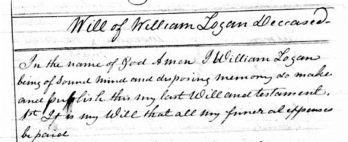 Will of William Logan Deceased
In the name of God Amen I William Logan
being of sound mind and disposing memory do make
and publish this my last Will and testament,
1st It is my Will that all my funeral expenses
be paid